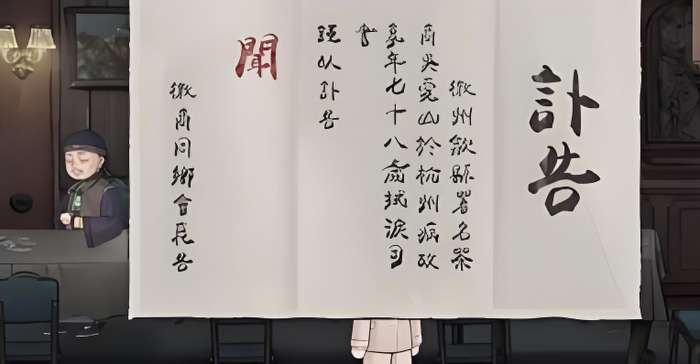 訃告
徽州歙縣著名茶
商吴雲山於杭州病故
享年七十八歲拭淚司
書
謹以訃告
聞
徽商同鄉會哀告